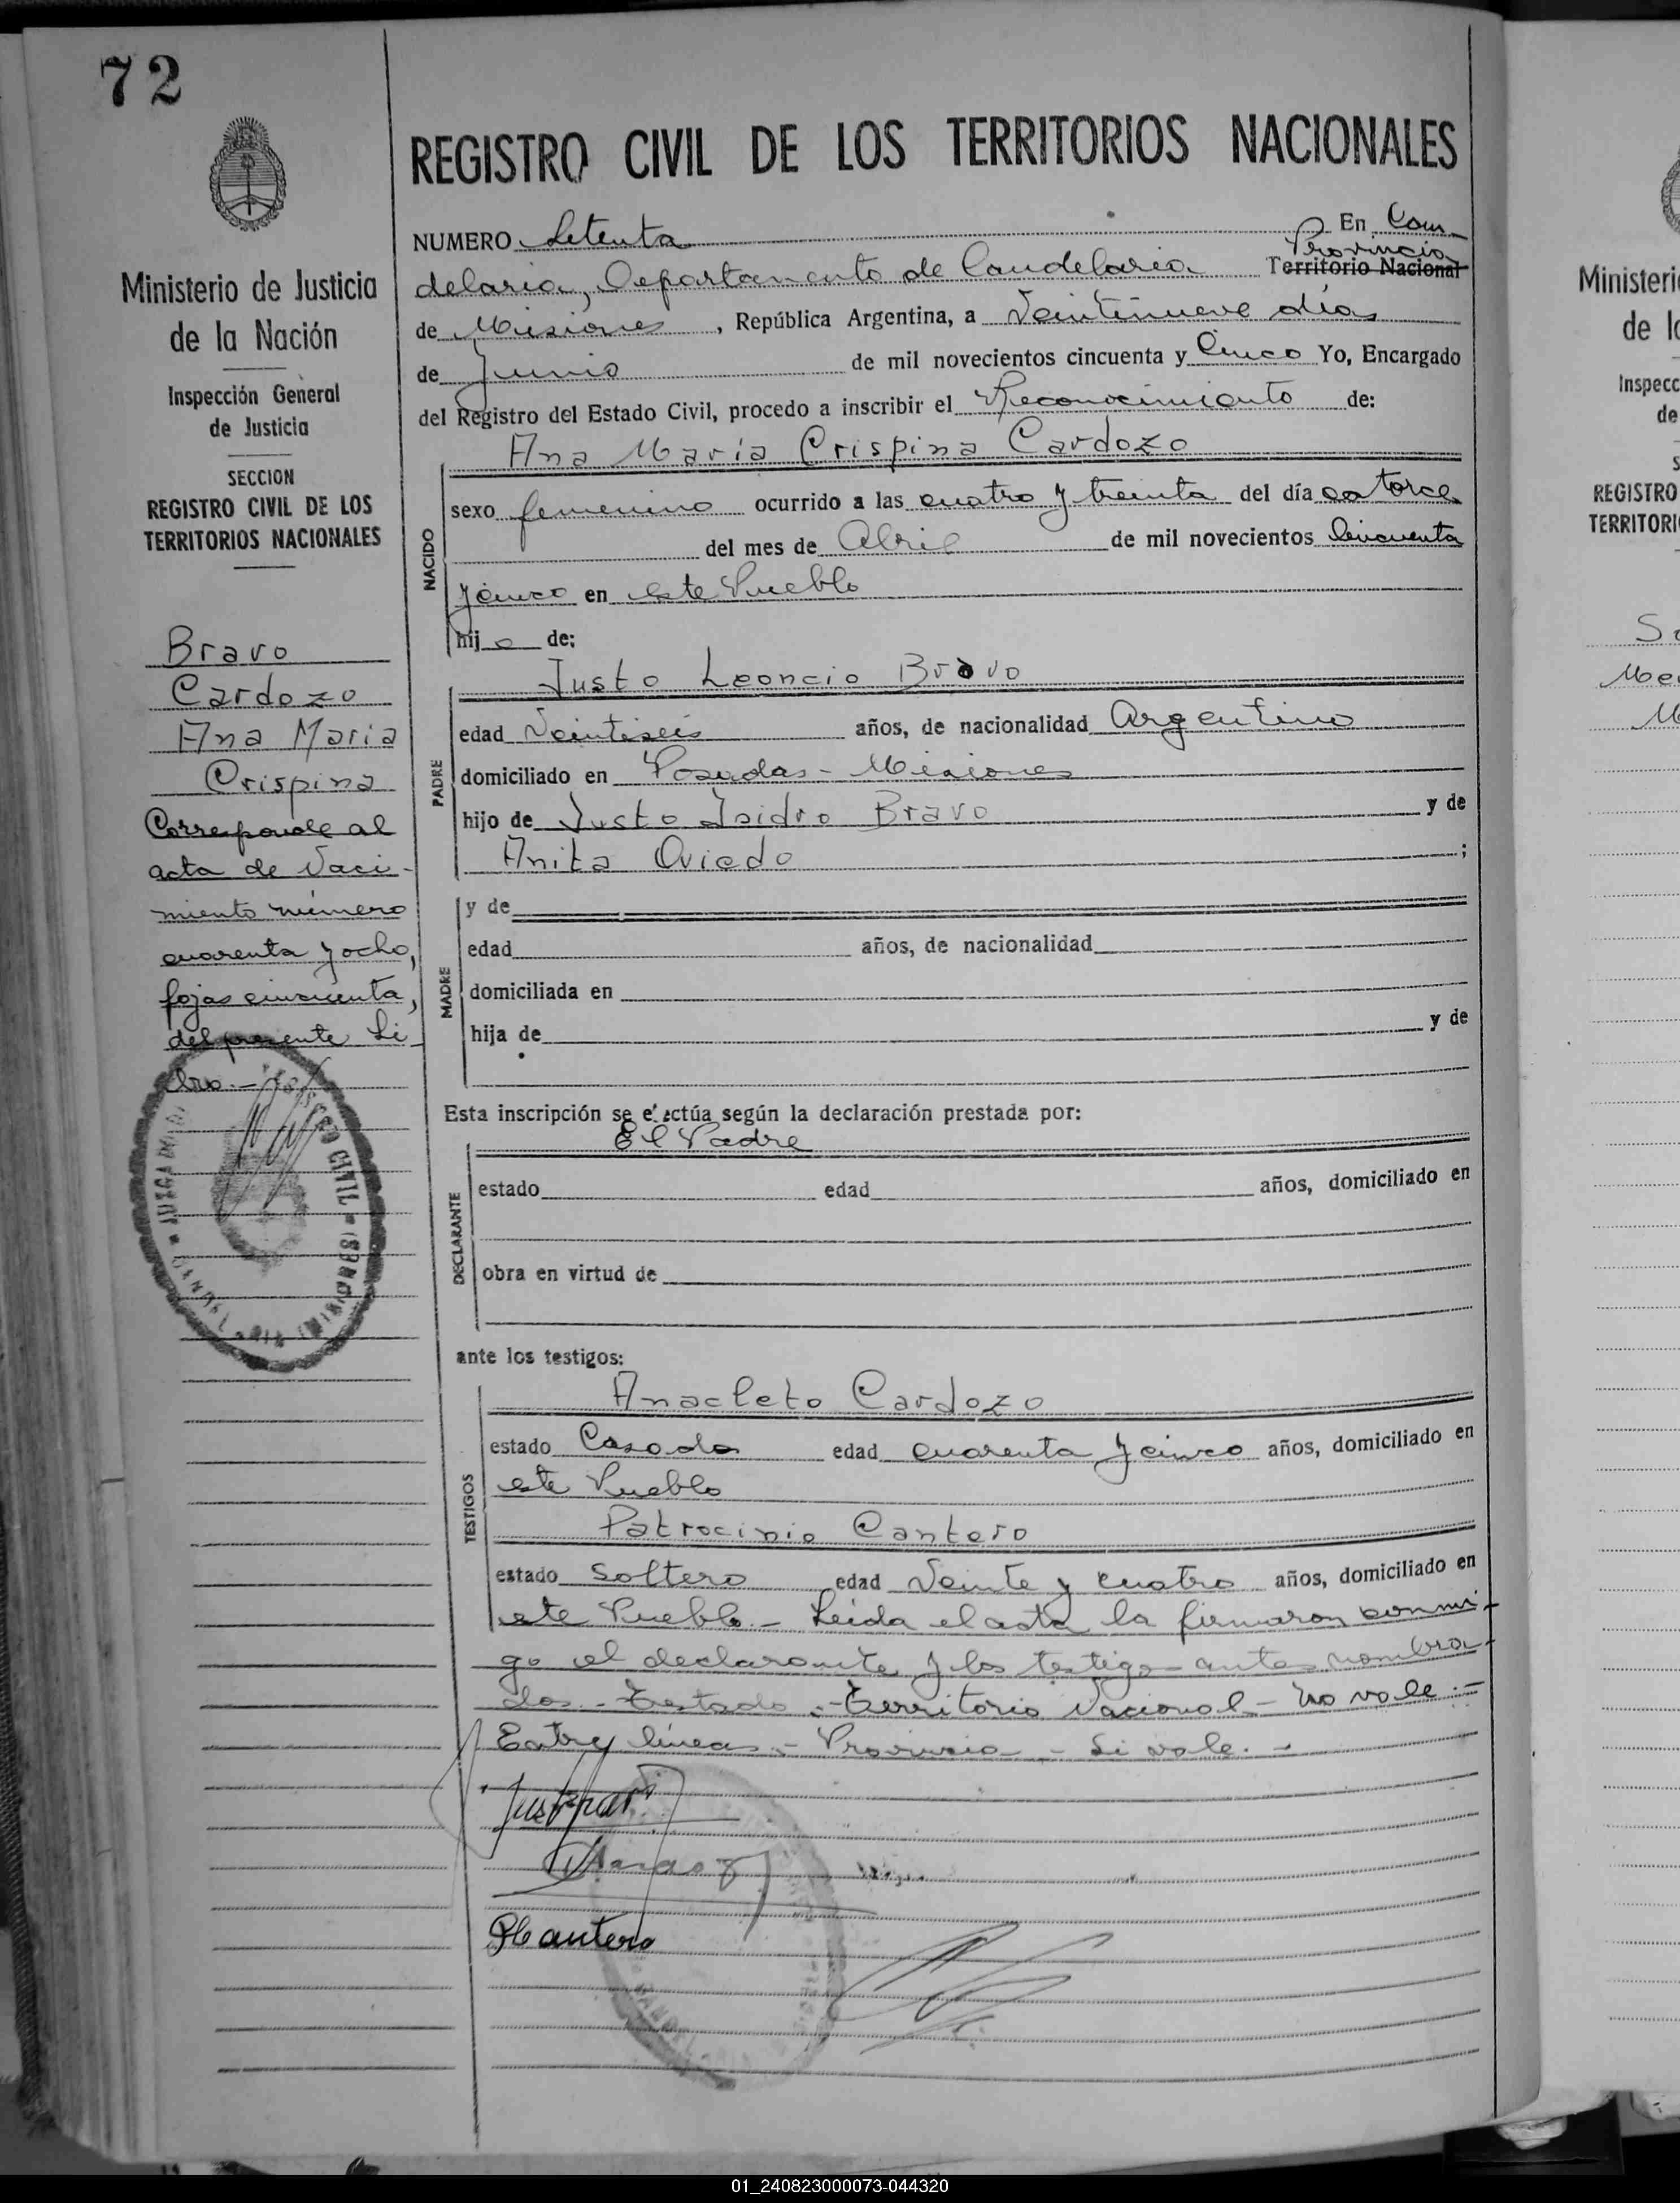 72
REGISTRO CIVIL DE LOS TERRITORIOS NACIONALES
Ministerio de Justicia
de la Nación
Inspección General
de Justicia
SECCION
REGISTRO CIVIL DE LOS
TERRITORIOS NACIONALES
Bravo
Cardozo
Ana Maria
Crispina
Corresponde al
acta de Naci-
miento número
cuarenta y ocho,
fojas cincuenta,
del presente Li-
bro.-
NUMERO Setenta En Can-
Provincia
delaria, Departamento de Candelaria Territorio Nacional
de Misiones, República Argentina, a Veintinueve días
de Junio de mil novecientos cincuenta y Cinco Yo, Encargado
del Registro del Estado Civil, procedo a inscribir el Reconocimiento de:
Ana María Crispina Cardozo
NACIDO
sexo femenino ocurrido a las cuatro y treinta del día catorce
del mes de Abril de mil novecientos Cincuenta
y cinco en este Pueblo
hija de:
Justo Leoncio Bravo
PADRE
edad Veintiseis años, de nacionalidad Argentino
domiciliado en Posadas - Misiones
hijo de Justo Isidro Bravo y de
Anita Oviedo ;
MADRE
y de
edad años, de nacionalidad
domiciliada en
hija de y de
Esta inscripción se efectúa según la declaración prestada por:
El Padre
DECLARANTE
estado edad años, domiciliado en
obra en virtud de
ante los testigos:
Anacleto Cardozo
TESTIGOS
estado Casado edad cuarenta y cinco años, domiciliado en
este Pueblo
Patrocinio Cantero
estado Soltero edad Veinte y cuatro años, domiciliado en
este Pueblo.- Leida el acta la firmaron conmi-
go el declarante y los testigos antes nombra-
dos.- Testado.- Territorio Nacional - No vale.-
Entre líneas.- Provincia - Si vale.-
PCantero
Ministeri
REGISTRO
TERRITORI
01_240823000073-044320